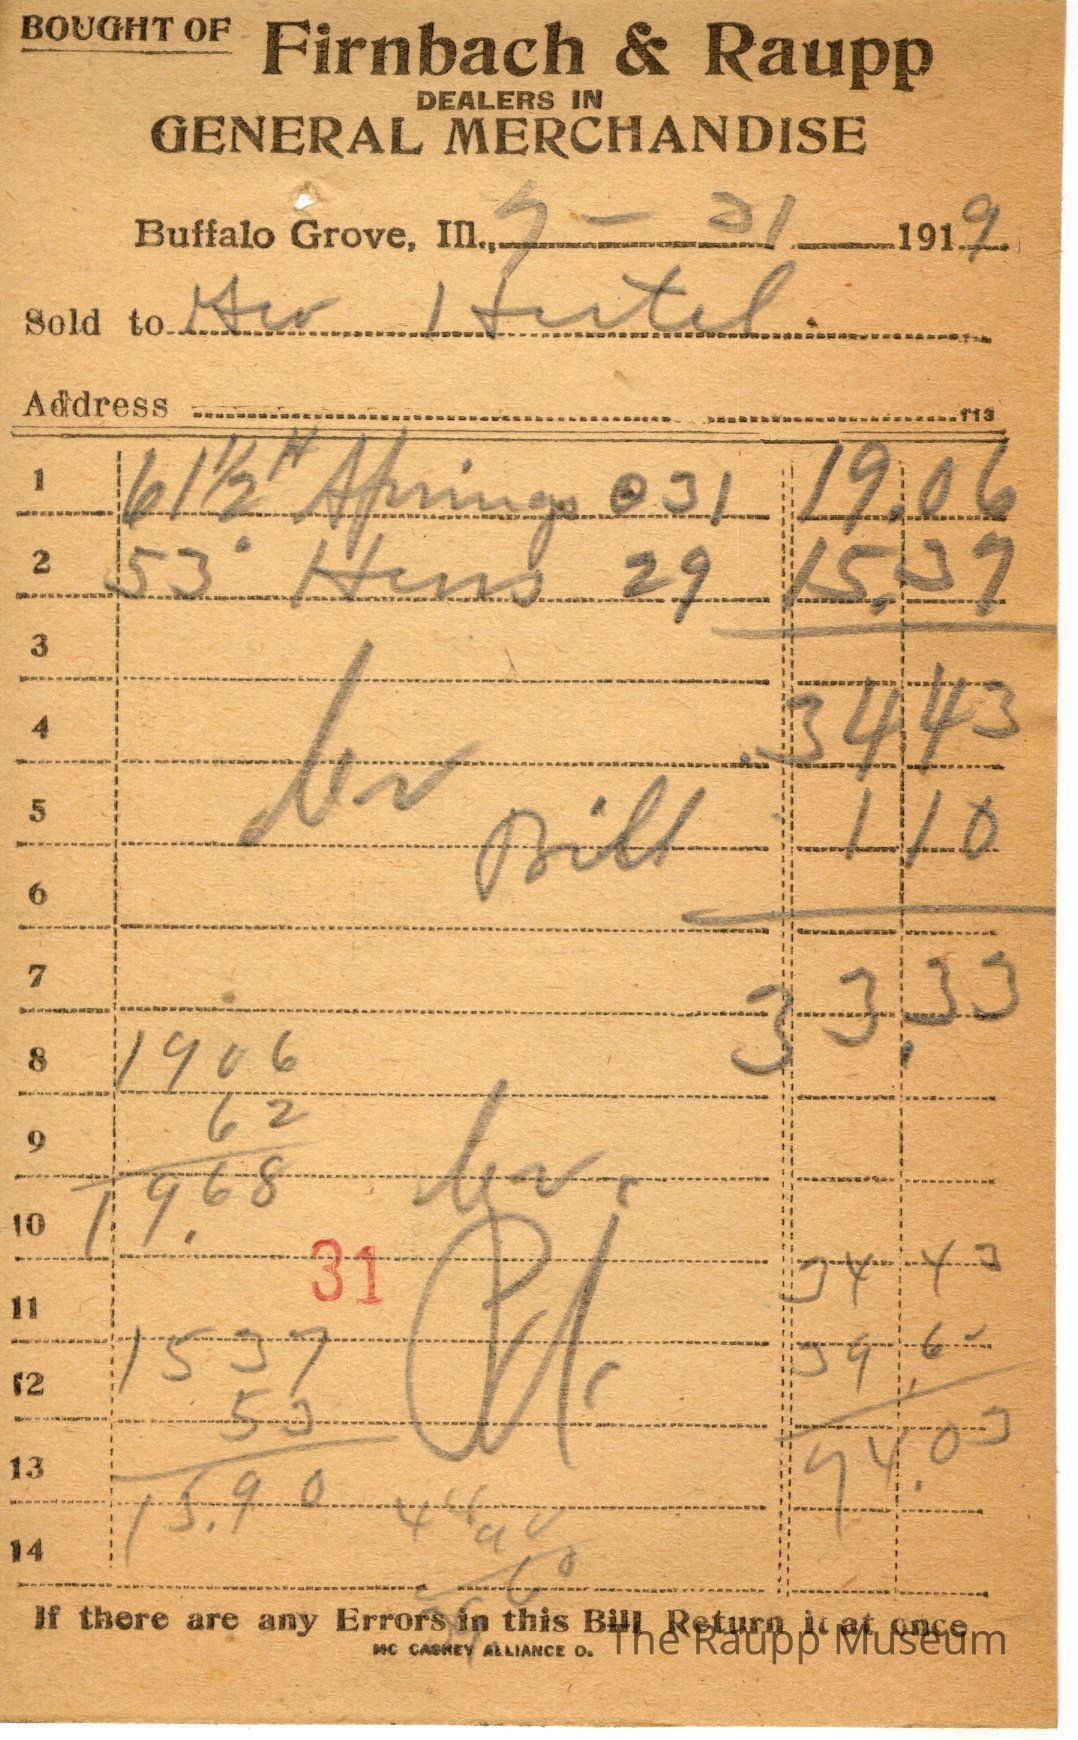 BOUGHT OF Firnbach & Raupp
DEALERS IN
GENERAL MERCHANDISE
Buffalo Grove, Ill., 7 - 31 1919
Sold to Hertel.
Address 113
1 61½ # Springs @ 31 19.06
2 53 Hens 29 15.37
3
4 34 43
5 Bill 1 10
6
7 33.33
8 1906
9 62
10 19.68
31
11 34 43
12 1537 39.60
53
13 15.90 74.03
14
If there are any Errors in this Bill Return it at once
MC CASKEY ALLIANCE O.
The Raupp Museum